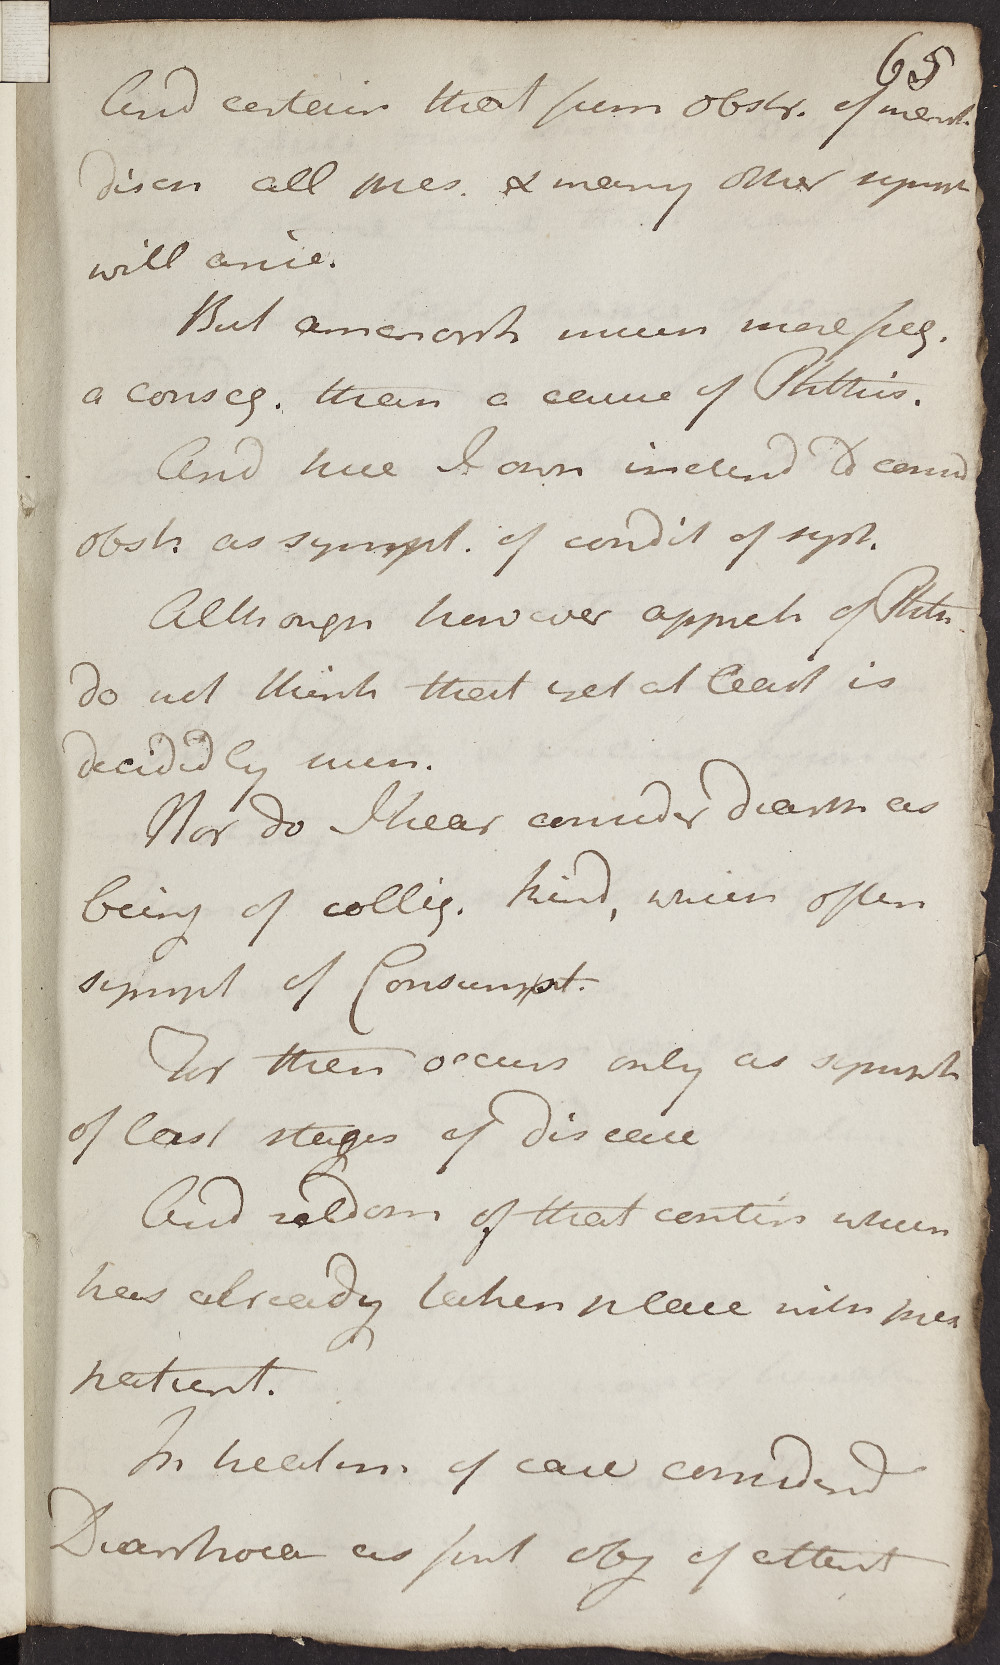 65
And certain that from obstr. of menst.
disch all pres. & many other sympt
will arise.
But amenorrh much more freq.
a conseq. than a cause of Phthis.
And here I own inclend to consid
obstr. as sympt. of condit of syst.
Although however appreh of Phth
do not think that yet at least is
decididly
Nor do I hear consider diarrh as
being of colliq. kind, which often
sympt of Consumpt.
For then occurs only as sympt
of last stages of disease
And seldom of that contin which
has already taken place with pres
patient.
In treatm of case considerd
Diarrhoea as first obj of attent